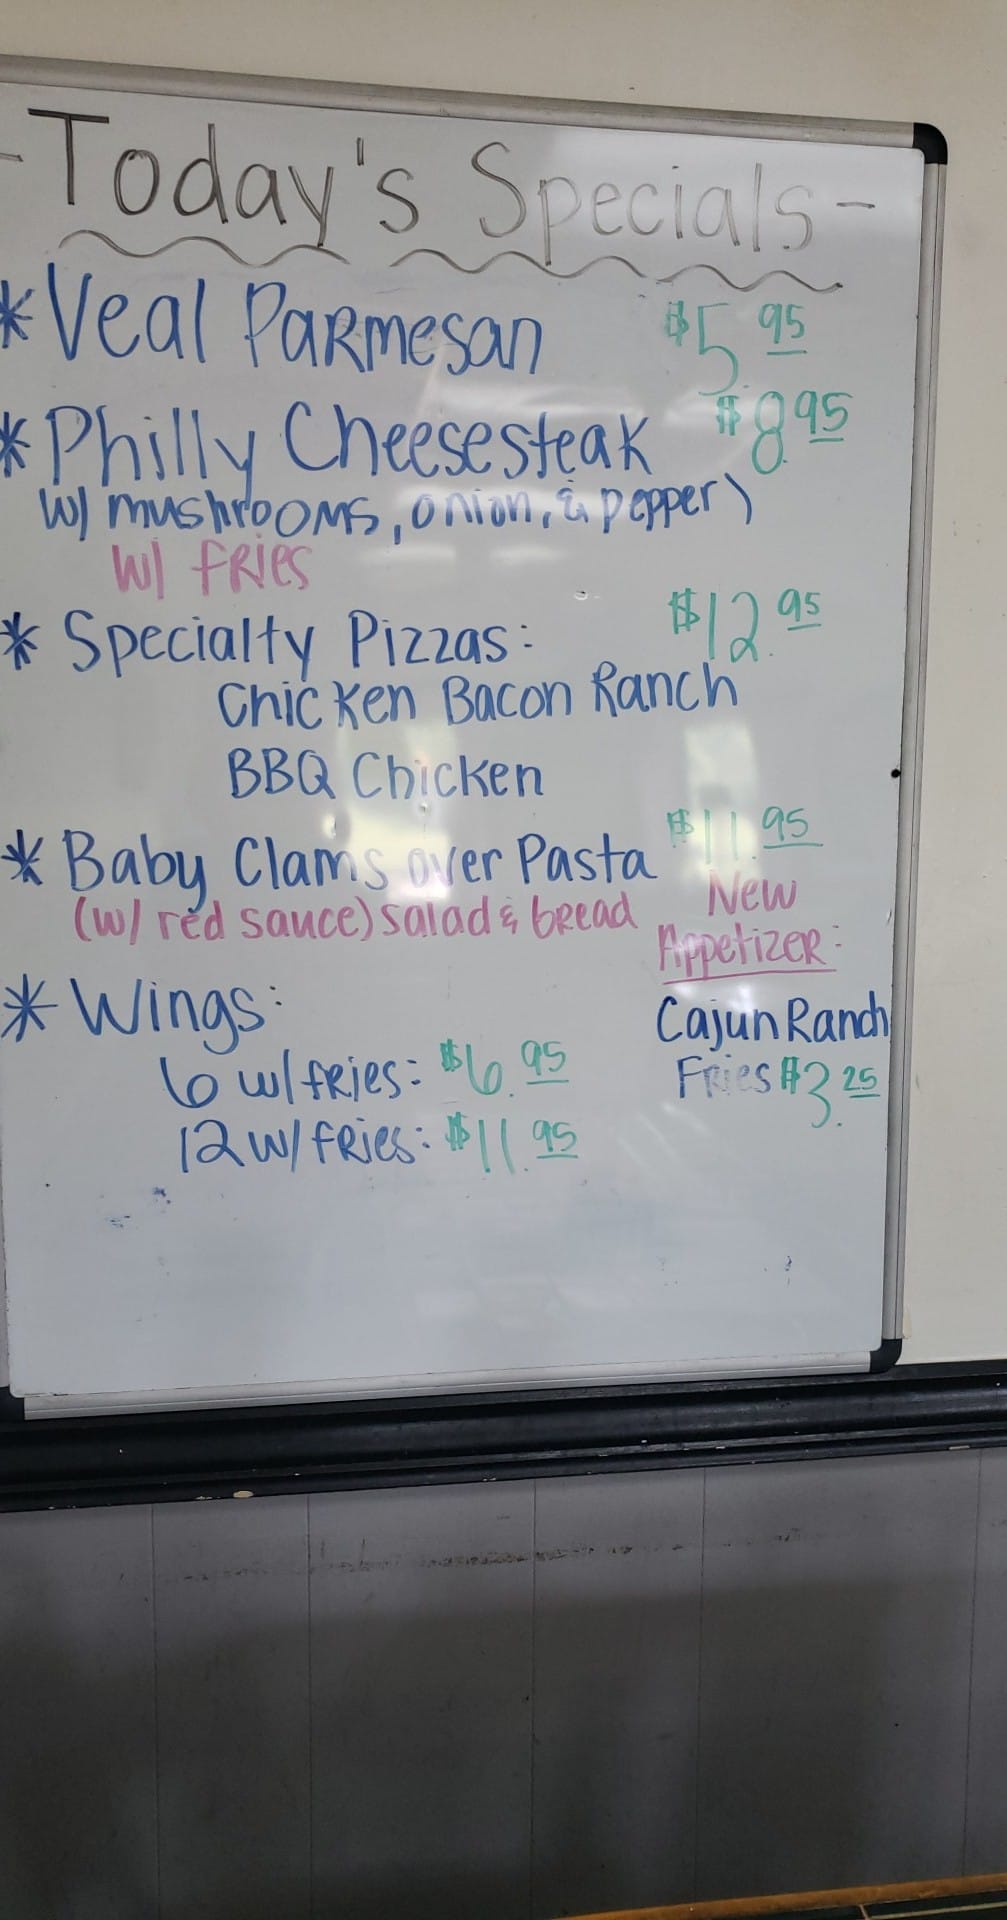 -Today's Specials-
* Veal Parmesan $5.95
* Philly Cheesesteak $8.95
w/ mushrooms, onion, & pepper)
w/ fries
* Specialty Pizzas: $12.95
Chicken Bacon Ranch
BBQ Chicken
* Baby Clams over Pasta $11.95
(w/ red sauce) salad & bread
* Wings:
6 w/fries: $6.95
12 w/fries: $11.95
New
Appetizer:
Cajun Ranch
Fries $3.25